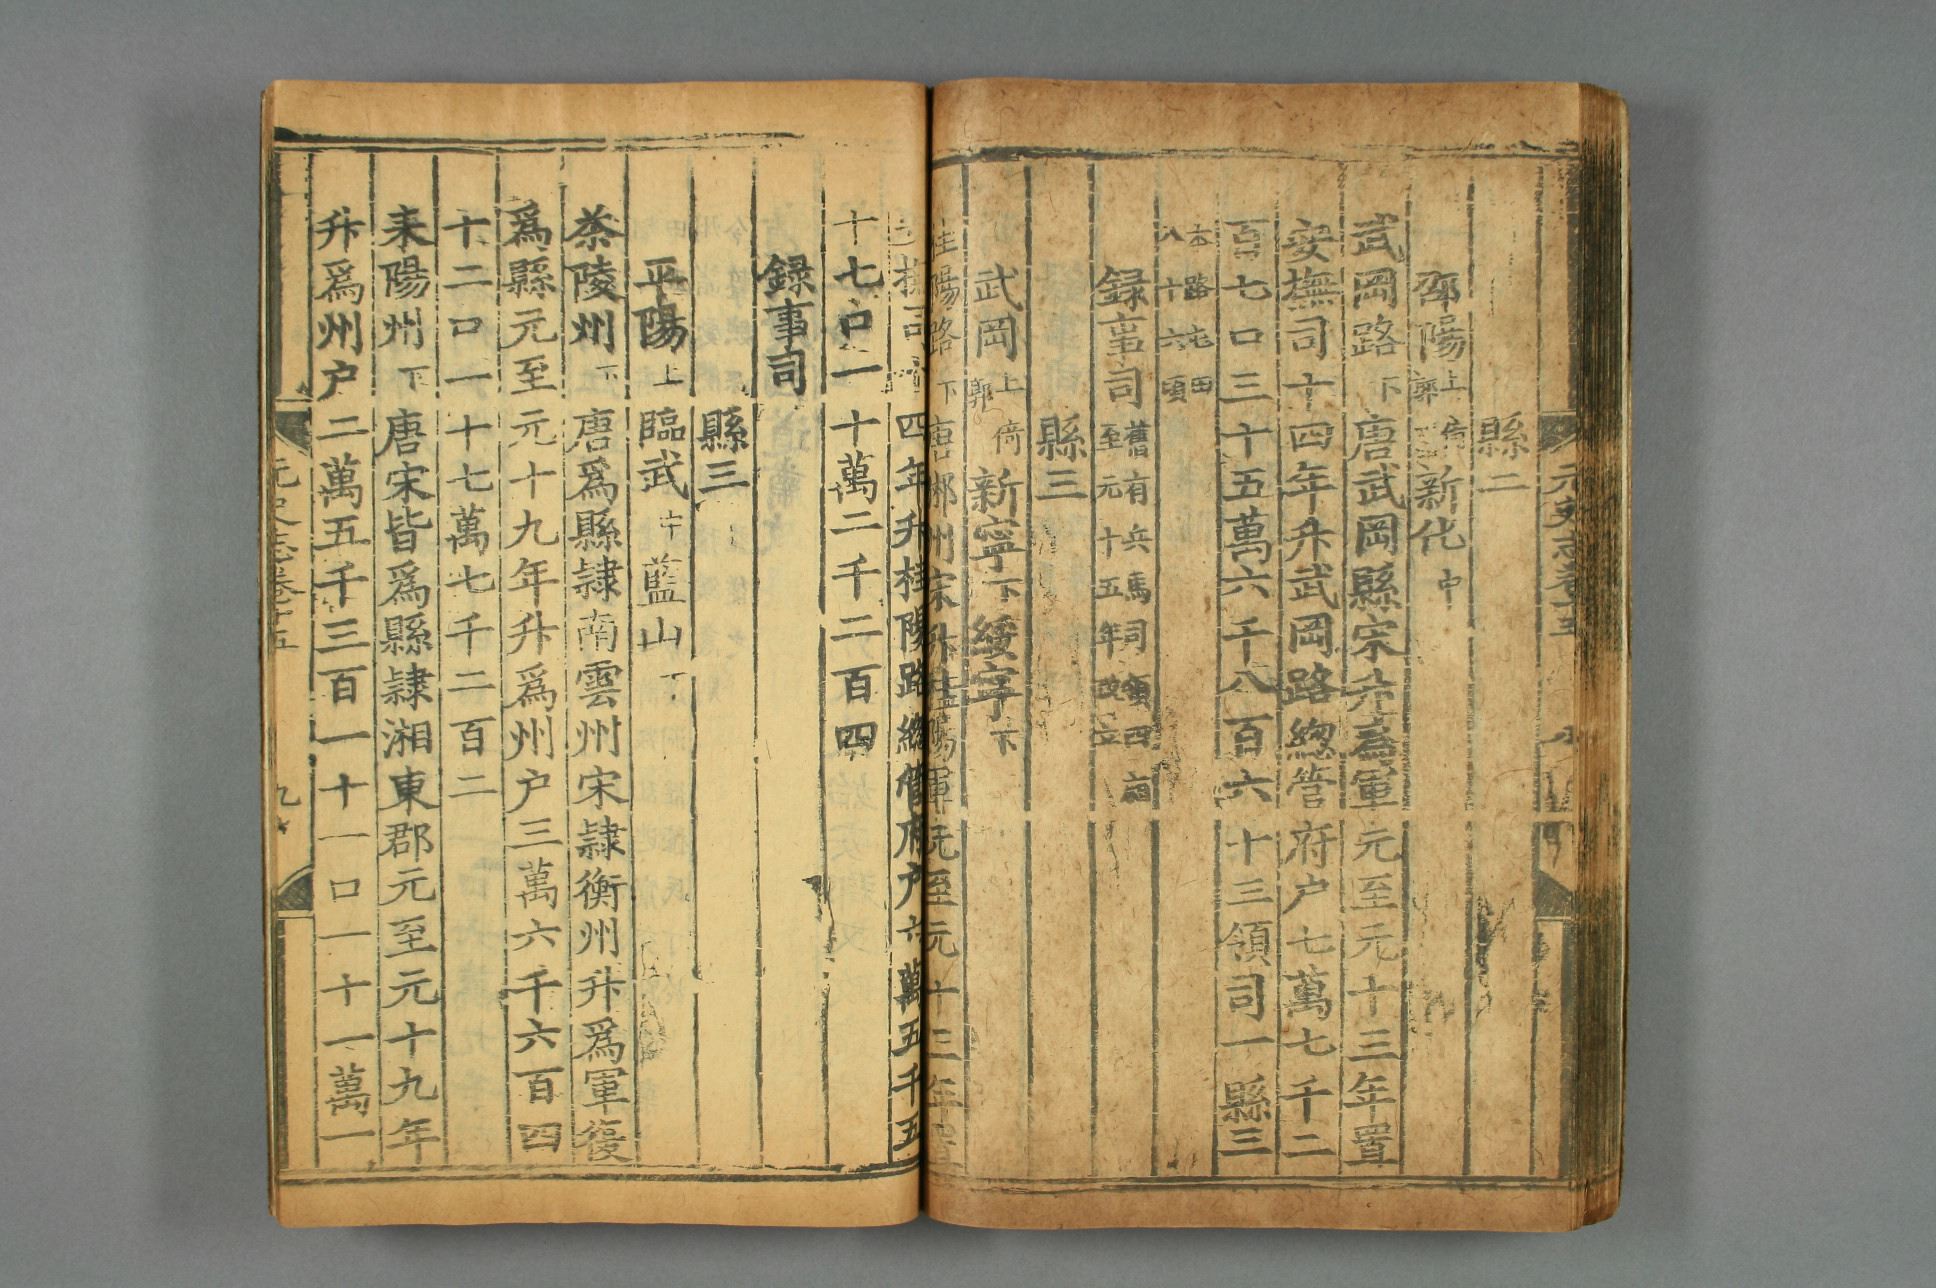 元史志卷十五
縣二
邵陽上倚郭新化中
武岡路下唐武岡縣宋升爲軍元至元十三年置
安撫司十四年升武岡路總管府户七萬七千二
百七口三十五萬六千八百六十三領司一縣三
本路屯田
八十六頃
録事司舊有兵馬司領四廂
至元十五年改立
縣三
武岡上倚郭新寧下綏寧下
桂陽路下唐郴州宋升桂陽軍元至元十三年置
撫司十四年升桂陽路總管府户六萬五千五
十七口一十萬二千二百四
録事司
縣三
平陽上臨武中藍山下
茶陵州下唐爲縣隷南雲州宋隷衡州升爲軍復
爲縣元至元十九年升爲州户三萬六千六百四
十二口一十七萬七千二百二
耒陽州下唐宋皆爲縣隷湘東郡元至元十九年
升爲州户二萬五千三百一十一口一十一萬一
元史志卷十五
九